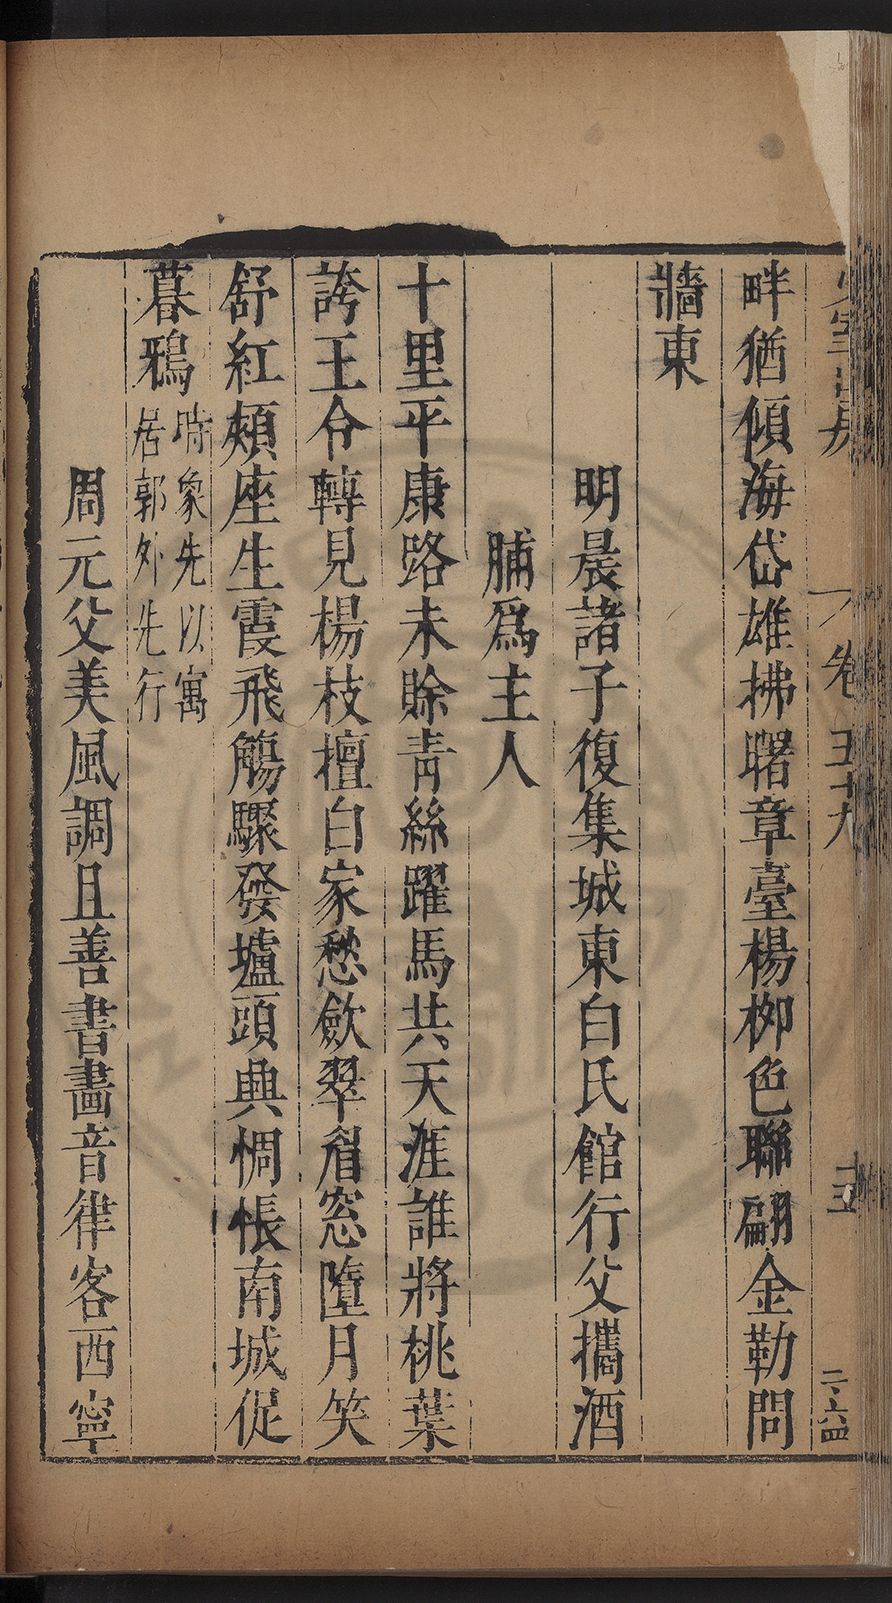 卷五十九
十五
二、六四
畔猶傾海岱雄拂曙章臺楊栁色聯翩金勒問
牆東
明晨諸子復集城東白氏館行父攜酒
脯爲主人
十里平康路未賒青絲躍馬共天涯誰將桃葉
誇王令轉見楊枝擅白家愁歛翠眉窓墮月笑
舒紅頰座生霞飛觴驟發壚頭興惆悵南城促
暮鴉時象先以寓
居郭外先行
周元父美風調且善書畵音律客西寧